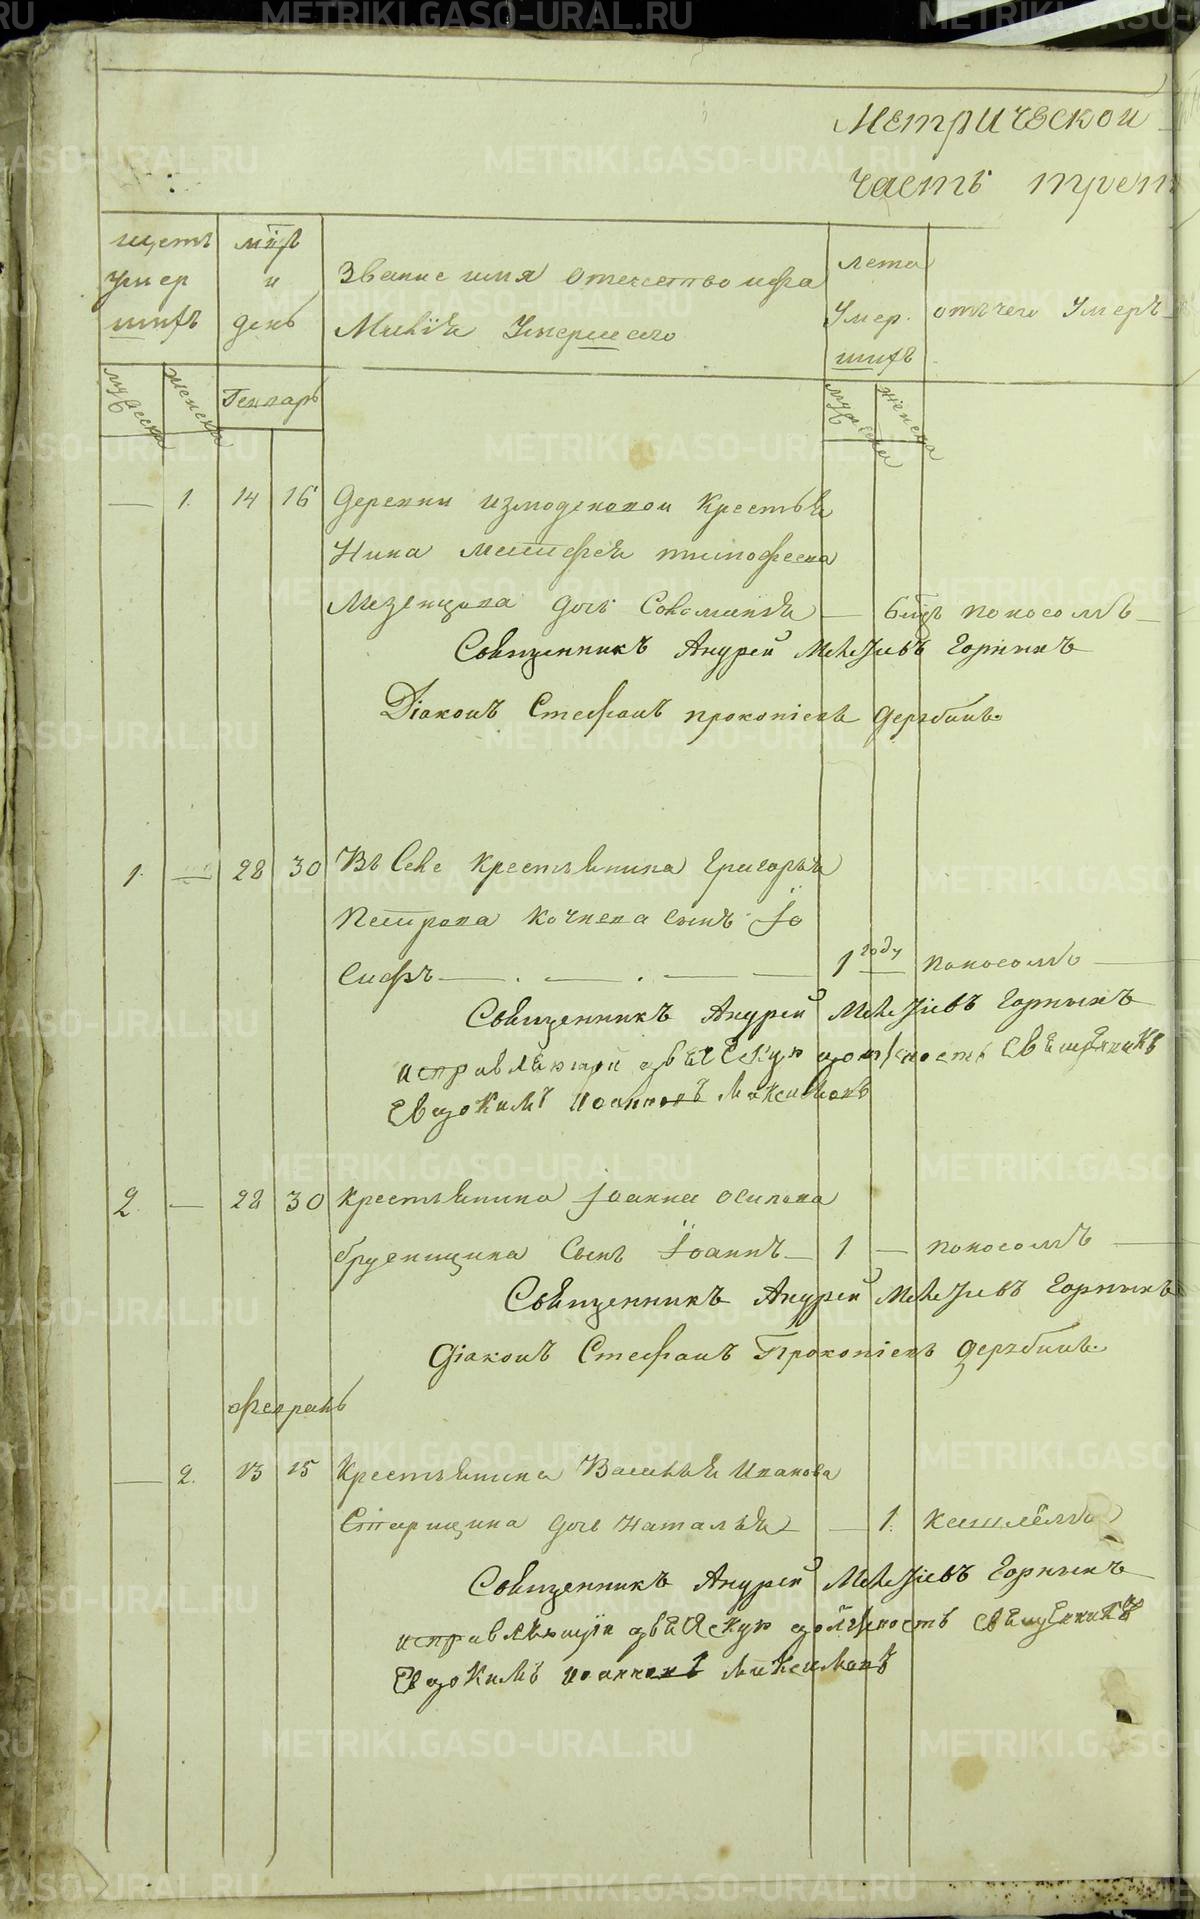 Метрической
часть трет
щетъ умер шихъ
мцъ и день
Звание имя отечество ифа
Милiя Умершего
лета Умер. шихъ
отъ чего Умеръ
мужеска
женска
Генварь
мужеска
женска
— 1. 14 16 деревни измоденовой Крестья
Нина тимофеева
Мезенцова дочь Соломия — 6 мцъ поносомъ
Священникъ Андрей Горныхъ
Дiаконъ Стефанъ прокопiевъ дерябинъ
1. — 28 30 Въ Селе крестьянина Григорья
Петрова Кочнева сынъ Iо
сифъ 1 году — поносомъ
Священникъ Андрей Горныхъ
исправляющи дьяческую должность священикъ
Евдокимъ иоанновъ Максимовъ
2. — 28 30 крестьянина Iоанна осипова
брусницина Сынъ Iоаннъ 1 — поносомъ
Священникъ Андрей Горныхъ
дiаконъ Стефанъ Прокопiевъ дерябинъ
Февраль
— 2. 13 15 Крестьянина Василья Иванова
Старицина дочь Наталья — 1. кашлёмъ
Священникъ Андрей Горныхъ
исправляющiи дьяческую должность священникъ
Евдокимъ иоанновъ Максимовъ
METRIKI.GASO-URAL.RU